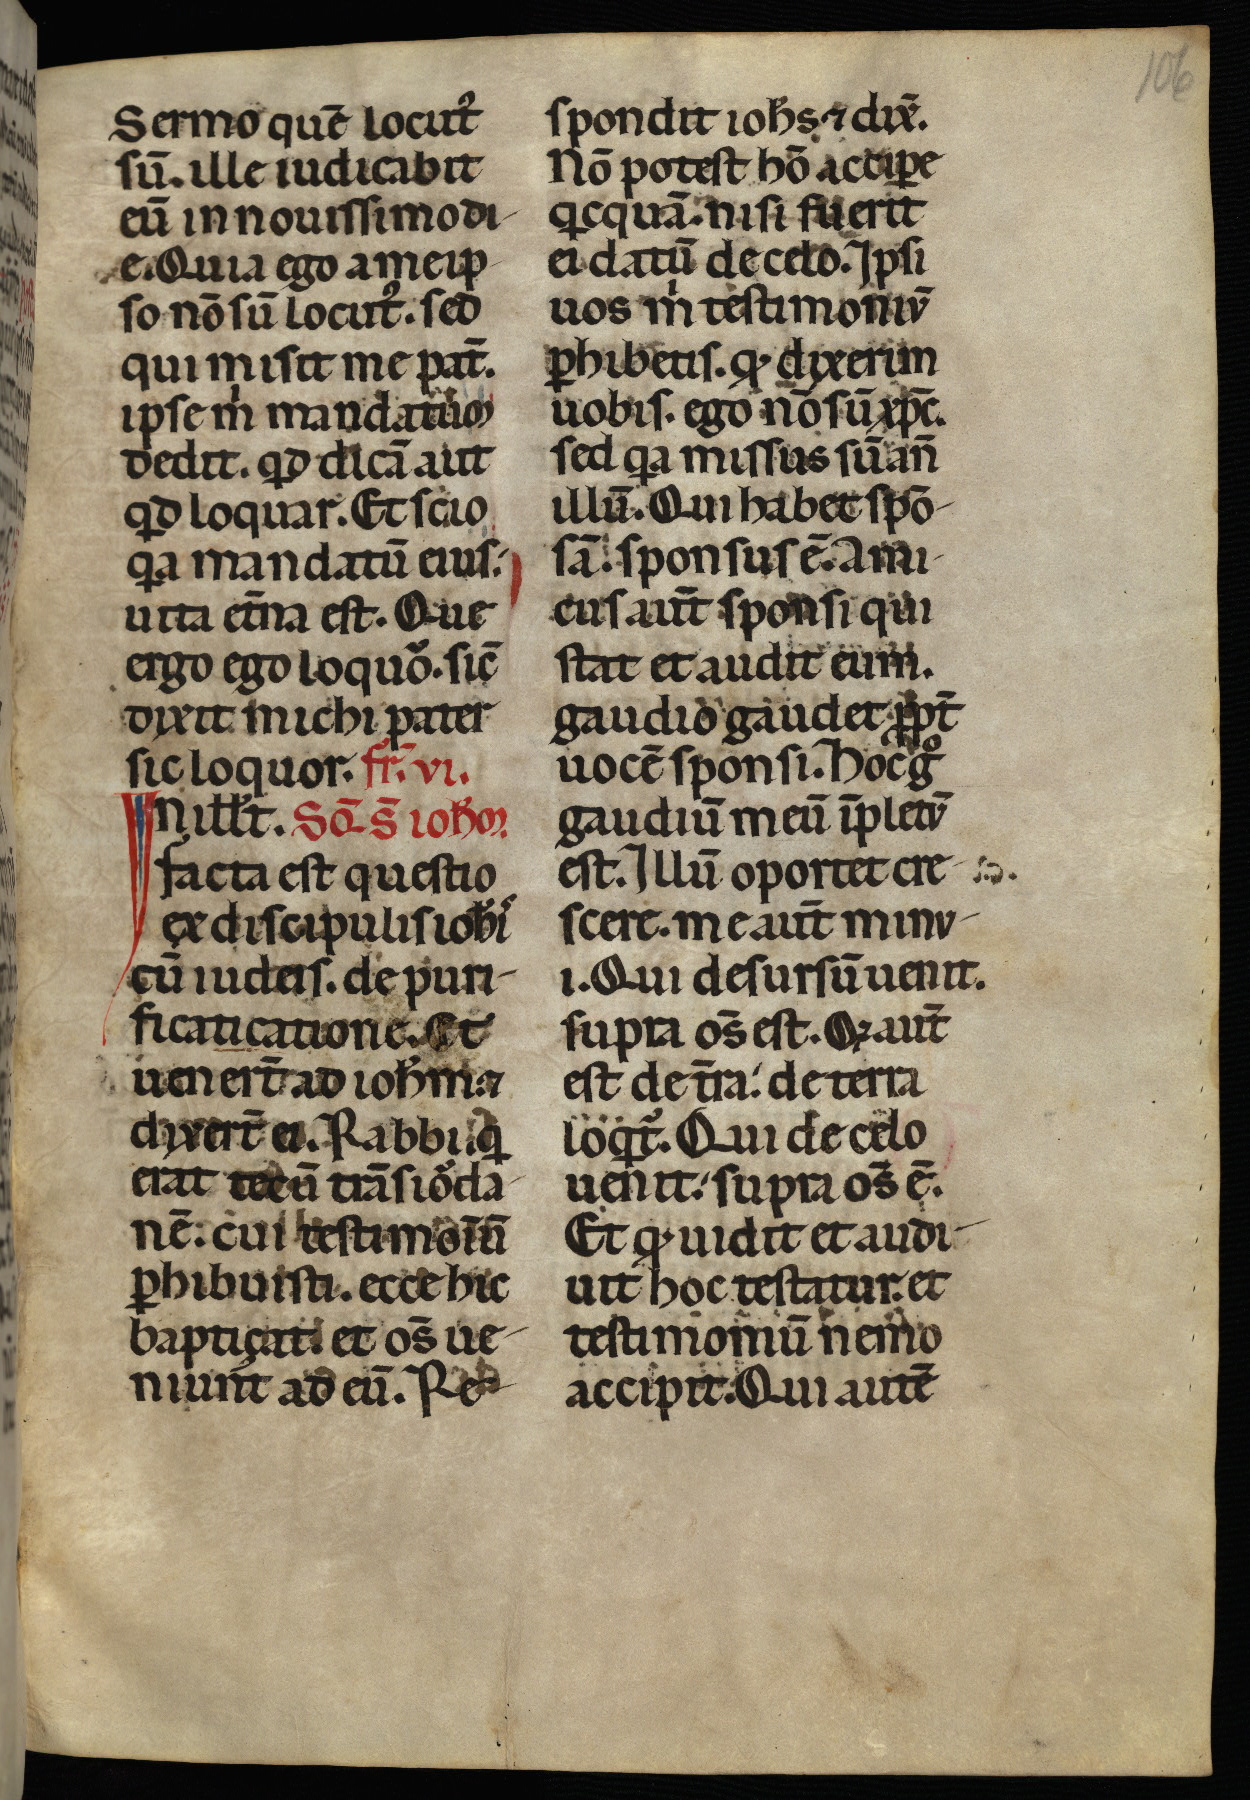 106
Sermo quē locutꝰ
sū. ille iudicabit
eū in nouissimo di-
e. Quia ego a me ip-
so nō sū locutꝰ. sed
qui misit me pat̄.
ipse m̍ mandatuꝫ
dedit. qd dicā aut
qd loquar. Et scio
qa mandatū eius.
uita et̄na est. Que
ergo ego loquor. sic̄
dixit michi pater
sic loquor. fr̄. vi.
In ill̄ t. Sc̄ō. s̄. ioh̄oꝫ
facta est questio
ex discipulis ioh̄is
cū iudeis. de puri-
ficaticatione. Et
uenert̄ ad ioh̄m. ⁊
dixert̄ ei. Rabbi. q̄
erat tecū trāsiorda-
nē. cui testimoīū
ꝑhibuisti. ecce hic
baptiçat. et oс̄ ue-
niunt ad eū. Re-
spondit ioh̄s. ⁊ dix̄.
Nō potest hō acciꝑe
qicquā. nisi fuerit
ei datū de celo. Ipsi
uos m̍ testimoniū
ꝑhibetis. qꝫ dixerim
uobis. ego nō sū xp̄c.
sed qa missus sū an̄
illū. Qui habet spō-
sā. sponsus ē. Ami-
cus aut̄ sponsi qui
stat et audit eum.
gaudio gaudet ꝓpt̄
uocē sponsi. Hoc gͦ
gaudiū meū īpletū
est. Illū oportet cre-
scere. me aut̄ minu-
i. Qui desursū uenit.
supra os̄ est. Qꝫ aut̄
est de t̄ra. de terra
loqt̄. Qui de celo
uenit. supra os̄ ē.
Et qꝫ uidit et audi-
uit hoc testatur. et
testimoniū nemo
accipit. Qui autē